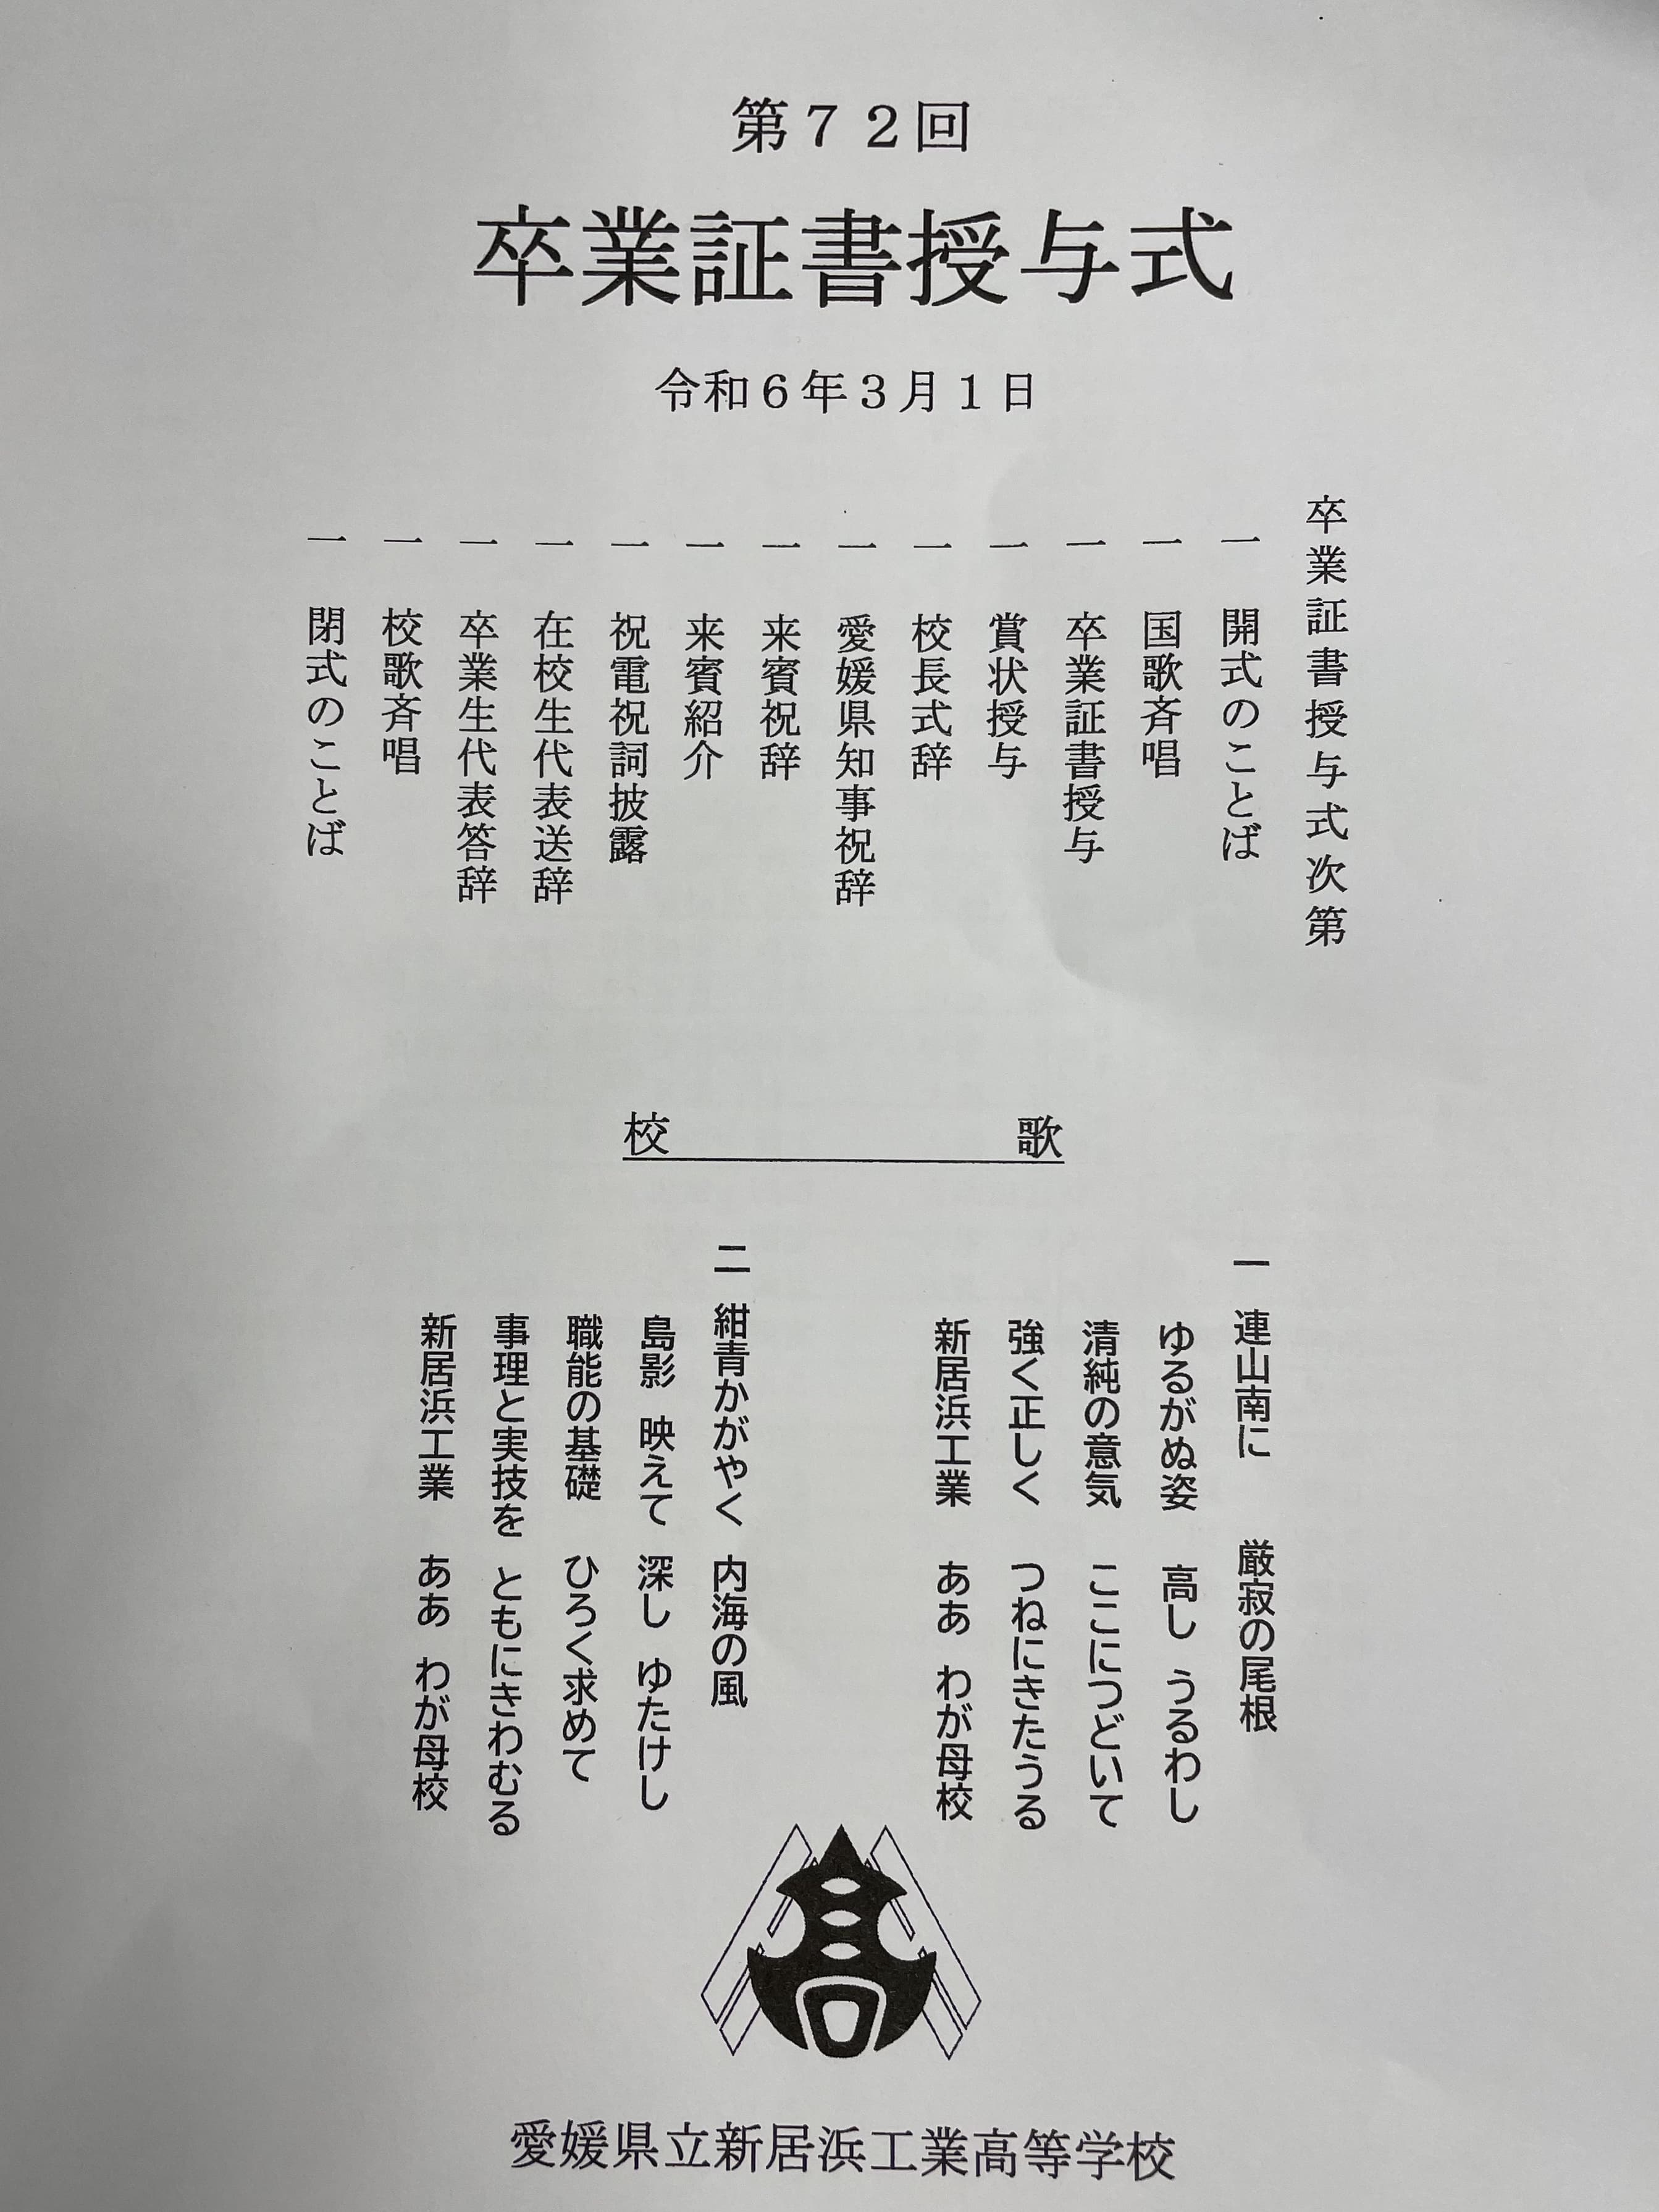 第７２回
卒業証書授与式
令和６年３月１日
卒業証書授与式次第
一　開式のことば
一　国歌斉唱
一　卒業証書授与
一　賞状授与
一　校長式辞
一　愛媛県知事祝辞
一　来賓祝辞
一　来賓紹介
一　祝電祝詞披露
一　在校生代表送辞
一　卒業生代表答辞
一　校歌斉唱
一　閉式のことば
校　歌
一　連山南に　厳寂の尾根
ゆるがぬ姿　高し　うるわし
清純の意気　ここにつどいて
強く正しく　つねにきたうる
新居浜工業　ああ　わが母校
二　紺青かがやく　内海の風
島影　映えて　深し　ゆたけし
職能の基礎　ひろく求めて
事理と実技を　ともにきわむる
新居浜工業　ああ　わが母校
愛媛県立新居浜工業高等学校